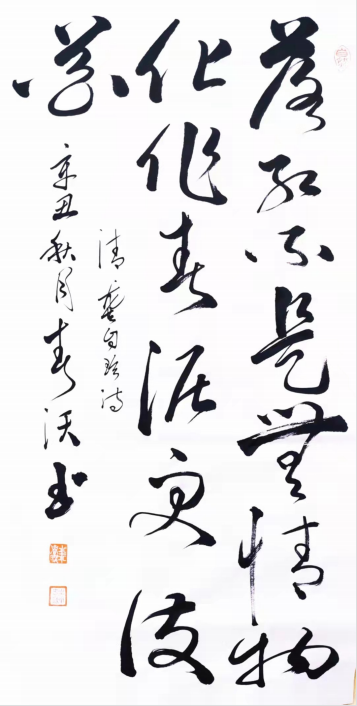 落紅不是無情物
化作春泥更護
花
清龔自珍詩
辛丑秋月春沃书